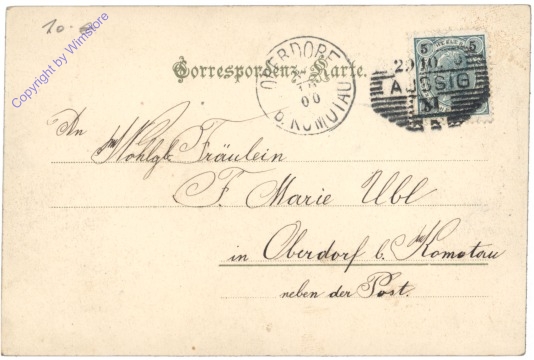 10.-
Copyright by Wimstore
Correspondenz-Karte.
OBERDORF
00
b. KOMOTAU
5 5
29 10
AUSSIG
An
Wohlgb. Fräulein
F. Marie Ubl
in Oberdorf b. Komotau
neben der Post.